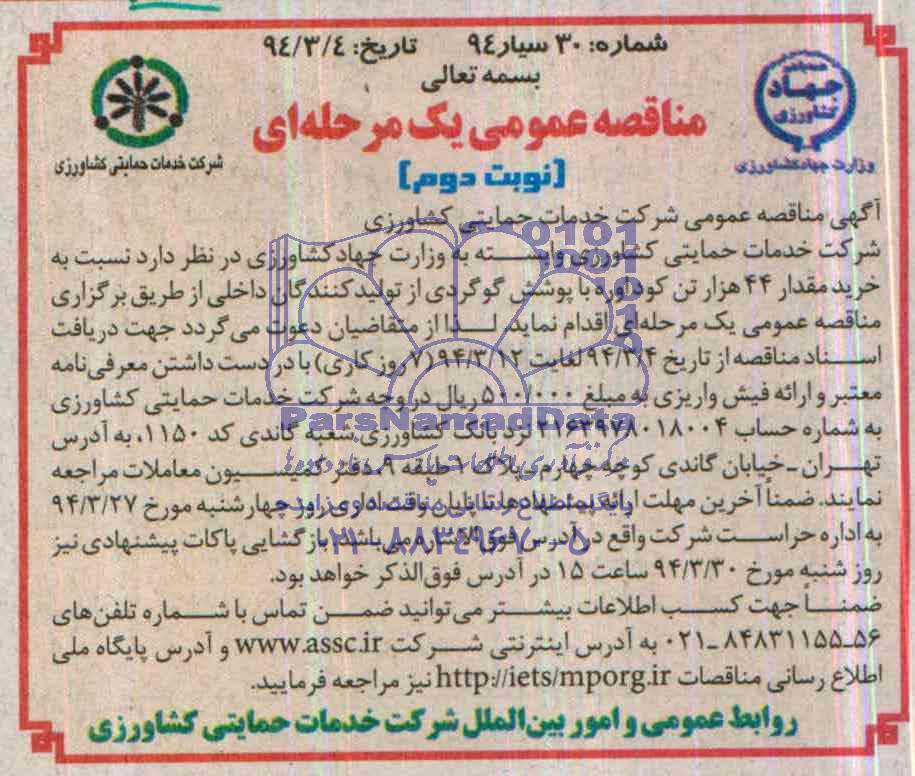 شماره: ۳۰ سیار ۹۴ تاریخ: ۹۴/۳/۴
بسمه تعالی
مناقصه عمومی یک مرحله‌ای
(نوبت دوم)
جهاد کشاورزی
وزارت جهاد کشاورزی
شرکت خدمات حمایتی کشاورزی
آگهی مناقصه عمومی شرکت خدمات حمایتی کشاورزی
شرکت خدمات حمایتی کشاورزی وابسته به وزارت جهاد کشاورزی در نظر دارد نسبت به
خرید مقدار ۴۴ هزار تن کود اوره با پوشش گوگردی از تولیدکنندگان داخلی از طریق برگزاری
مناقصه عمومی یک مرحله‌ای اقدام نماید. لذا از متقاضیان دعوت می‌گردد جهت دریافت
اسناد مناقصه از تاریخ ۹۴/۳/۴ لغایت ۹۴/۳/۱۲ (۷ روز کاری) با در دست داشتن معرفی‌نامه
معتبر و ارائه فیش واریزی به مبلغ ۵۰۰/۰۰۰ ریال در وجه شرکت خدمات حمایتی کشاورزی
به شماره حساب نزد بانک کشاورزی شعبه گاندی کد ۱۱۵۰، به آدرس
تهران - خیابان گاندی کوچه چهارم پلاک ۱ طبقه ۹ دفتر کمیسیون معاملات مراجعه
نمایند. ضمناً آخرین مهلت ارائه پیشنهادها تا پایان وقت اداری روز چهارشنبه مورخ ۹۴/۳/۲۷
به اداره حراست شرکت واقع در آدرس فوق‌الاشاره می‌باشد. بازگشایی پاکات پیشنهادی نیز
روز شنبه مورخ ۹۴/۳/۳۰ ساعت ۱۵ در آدرس فوق‌الذکر خواهد بود.
ضمناً جهت کسب اطلاعات بیشتر می‌توانید ضمن تماس با شماره تلفن‌های
۵۶ـ۸۴۸۳۱۱۵۵ ـ۰۲۱ به آدرس اینترنتی شرکت www.assc.ir و آدرس پایگاه ملی
اطلاع رسانی مناقصات http://iets/mporg.ir نیز مراجعه فرمایید.
روابط عمومی و امور بین‌الملل شرکت خدمات حمایتی کشاورزی
ParsNamadData
۰۲۱-۸۸۳۴۹۶۷۰-۵